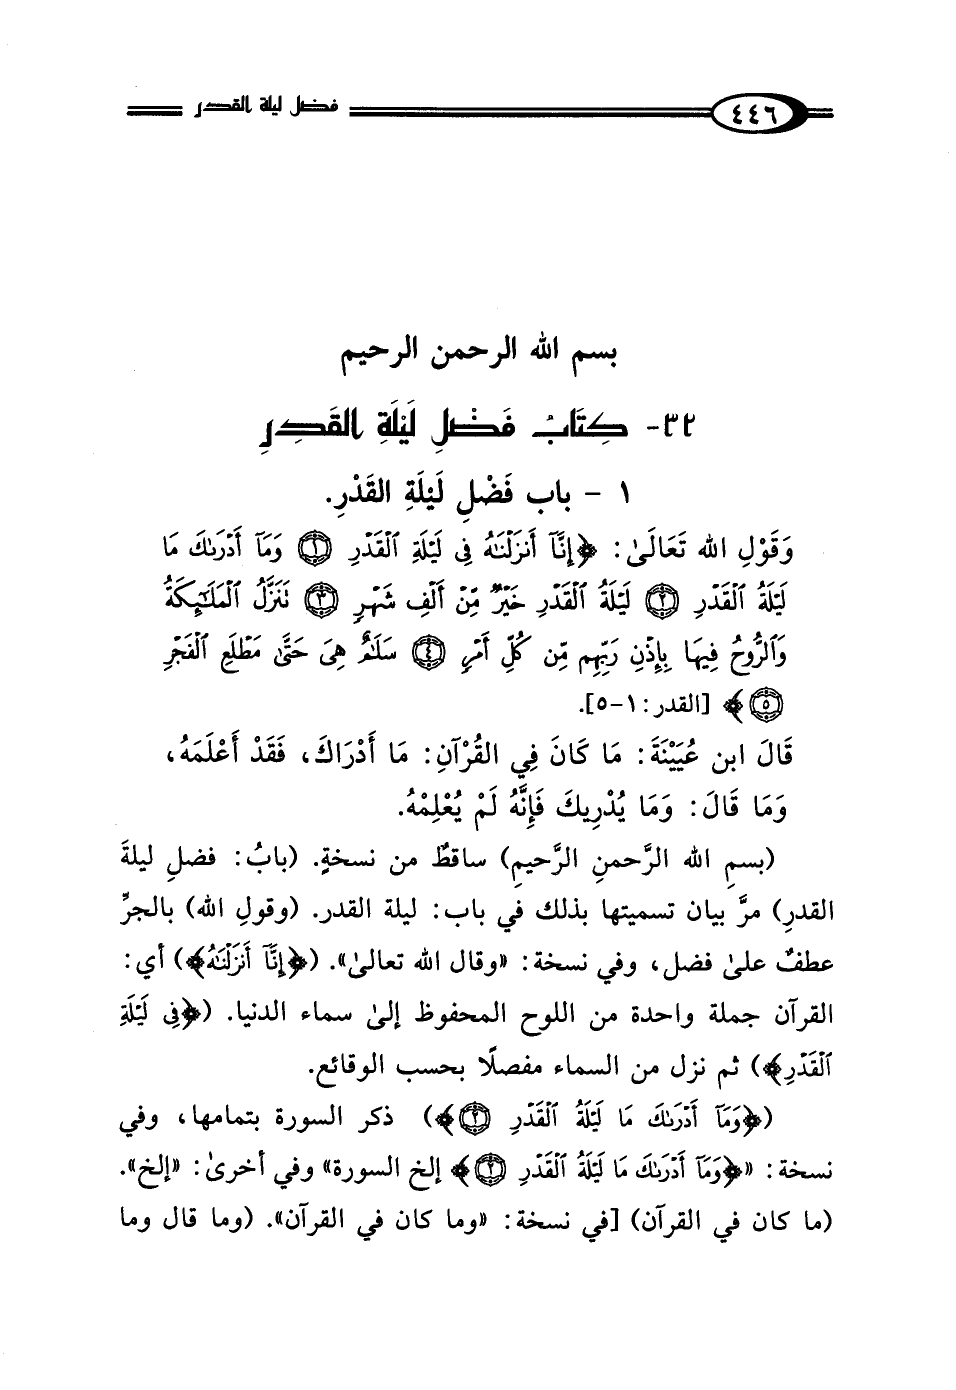 ٤٤٦ فضل ليلة القدر
بسم الله الرحمن الرحيم
٣٢- كِتَابُ فَضْلِ لَيْلَةِ القَدْرِ
١ - باب فَضْلِ لَيْلَةِ القَدْرِ.
وَقَوْلِ الله تَعَالَىٰ: ﴿إِنَّآ أَنزَلْنَٰهُ فِى لَيْلَةِ ٱلْقَدْرِ ١ وَمَآ أَدْرَىٰكَ مَا
لَيْلَةُ ٱلْقَدْرِ ٢ لَيْلَةُ ٱلْقَدْرِ خَيْرٌ مِّنْ أَلْفِ شَهْرٍ ٣ تَنَزَّلُ ٱلْمَلَٰٓئِكَةُ
وَٱلرُّوحُ فِيهَا بِإِذْنِ رَبِّهِم مِّن كُلِّ أَمْرٍ ٤ سَلَٰمٌ هِىَ حَتَّىٰ مَطْلَعِ ٱلْفَجْرِ
٥﴾ [القدر: ١-٥].
قَالَ ابن عُيَيْنَةَ: مَا كَانَ فِي القُرْآنِ: مَا أَدْرَاكَ، فَقَدْ أَعْلَمَهُ،
وَمَا قَالَ: وَمَا يُدْرِيكَ فَإِنَّهُ لَمْ يُعْلِمْهُ.
(بسمِ الله الرَّحمنِ الرَّحيمِ) ساقطٌ من نسخةٍ. (بابُ: فضلِ ليلةَ
القدرِ) مرَّ بيان تسميتها بذلك في باب: ليلة القدر. (وقولِ الله) بالجرِّ
عطفٌ علىٰ فضل، وفي نسخة: «وقال الله تعالىٰ». (﴿إِنَّآ أَنزَلْنَٰهُ﴾) أي:
القرآن جملة واحدة من اللوح المحفوظ إلىٰ سماء الدنيا. (﴿فِى لَيْلَةِ
ٱلْقَدْرِ﴾) ثم نزل من السماء مفصلًا بحسب الوقائع.
(﴿وَمَآ أَدْرَىٰكَ مَا لَيْلَةُ ٱلْقَدْرِ ٢﴾) ذكر السورة بتمامها، وفي
نسخة: «﴿وَمَآ أَدْرَىٰكَ مَا لَيْلَةُ ٱلْقَدْرِ ٢﴾ إلخ السورة» وفي أخرىٰ: «إلخ».
(ما كان في القرآن) [في نسخة: «وما كان في القرآن». (وما قال وما